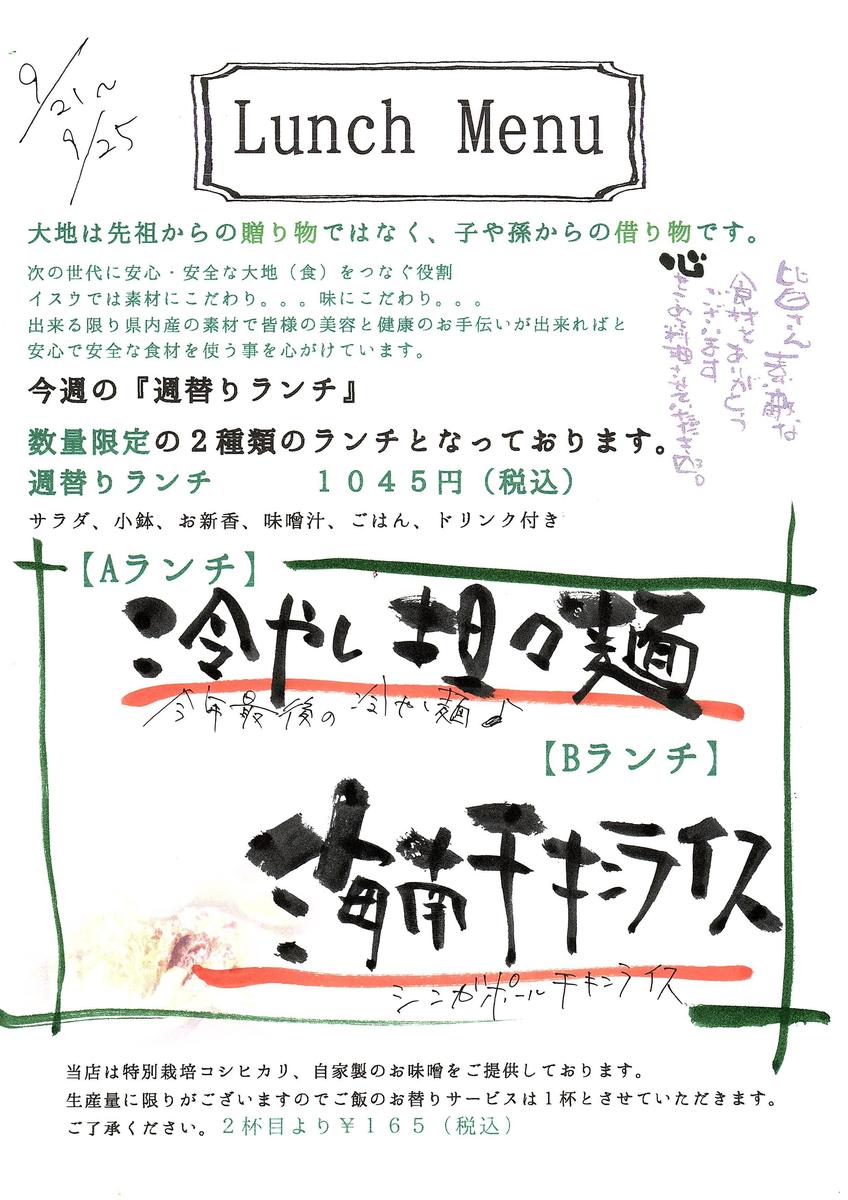 9/21〜
9/25
Lunch Menu
大地は先祖からの贈り物ではなく、子や孫からの借り物です。
次の世代に安心・安全な大地（食）をつなぐ役割
イスウでは素材にこだわり。。。味にこだわり。。。
出来る限り県内産の素材で皆様の美容と健康のお手伝いが出来ればと
安心で安全な食材を使う事を心がけています。
皆さん素敵な
食材をありがとう
ございます
心
をこめ料理させていただきます。
今週の『週替りランチ』
数量限定の２種類のランチとなっております。
週替りランチ　　　１０４５円（税込）
サラダ、小鉢、お新香、味噌汁、ごはん、ドリンク付き
【Aランチ】
冷やし坦々麺
今年最後の冷やし麺♪
【Bランチ】
海南チキンライス
シンガポールチキンライス
当店は特別栽培コシヒカリ、自家製のお味噌をご提供しております。
生産量に限りがございますのでご飯のお替りサービスは１杯とさせていただきます。
ご了承ください。２杯目より￥１６５（税込）